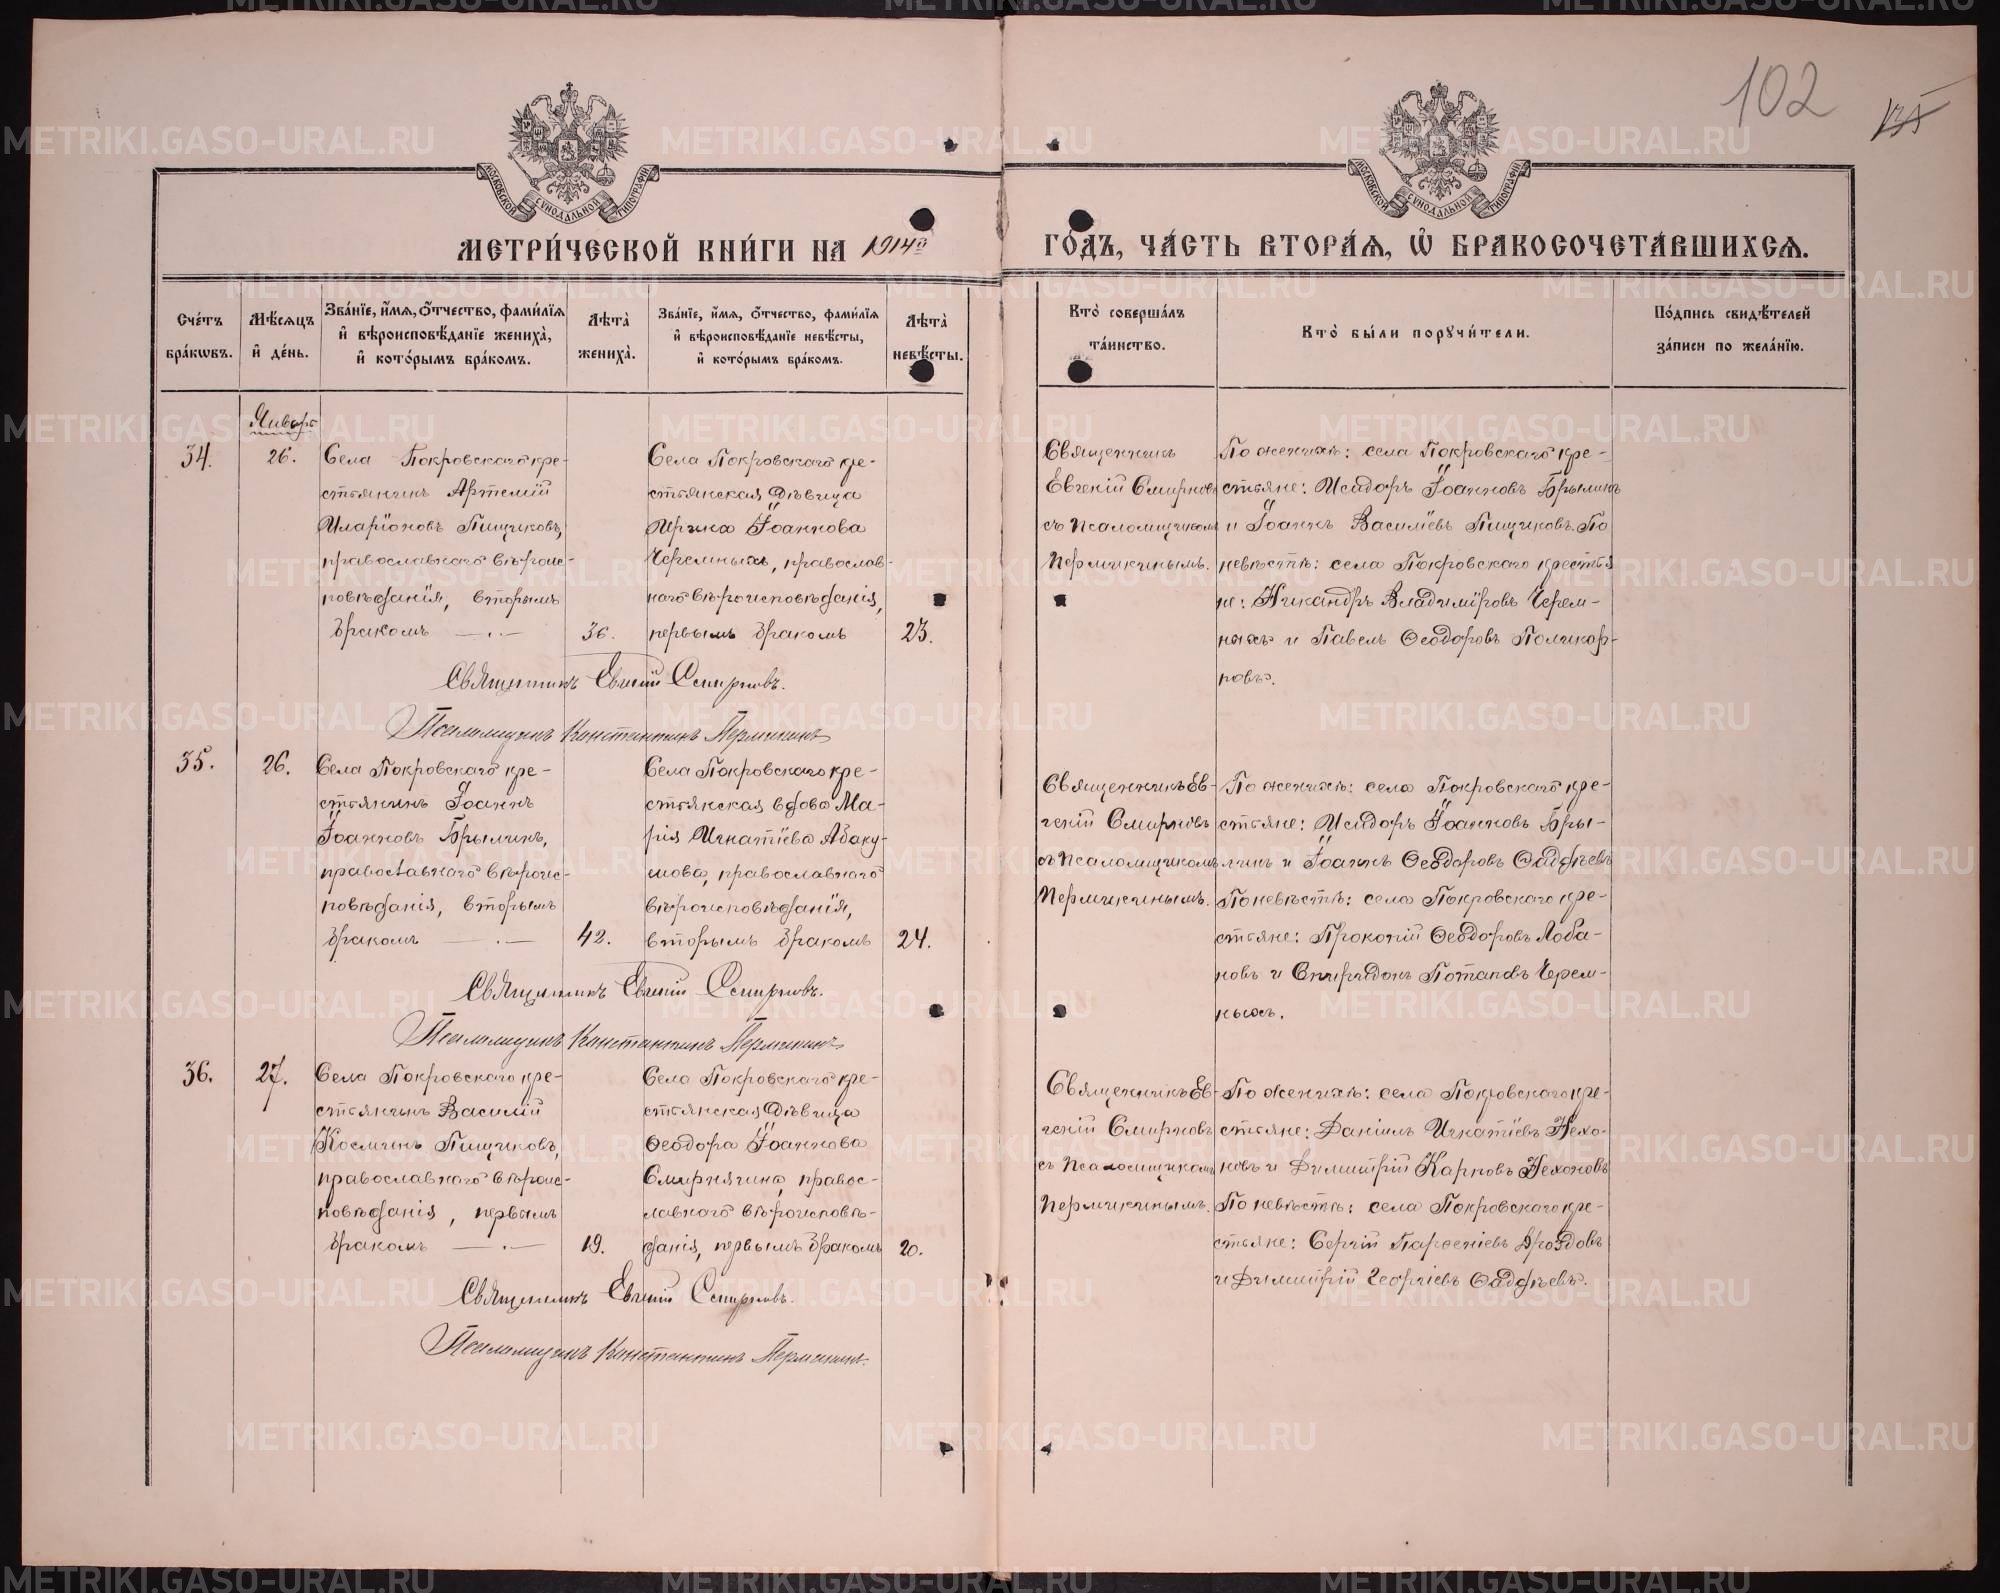 102
МОСКОВСКОЙ СѴНОДАЛЬНОЙ ТИПОГРАФІИ
МОСКОВСКОЙ СѴНОДАЛЬНОЙ ТИПОГРАФІИ
МЕТРИ́ЧЕСКОЙ КНИ́ГИ НА 1914й
ГО́ДЪ, ЧА́СТЬ ВТОРА́Я, Ѡ БРАКОСОЧЕТА́ВШИХСЯ.
Сче́тъ бра́кѡвъ.
Мѣ́сяцъ и҆ де́нь.
Зва́нїе, и҆́мя, о҆́тчество, фами́лїя
и҆ вѣроисповѣ́данїе жениха̀,
и҆ кото́рымъ бра́комъ.
Лѣта̀ жениха̀.
Зва́нїе, и҆́мя, о҆́тчество, фами́лїя
и҆ вѣроисповѣ́данїе невѣ́сты,
и҆ кото́рымъ бра́комъ.
Лѣта̀ невѣ́сты.
Кто̀ соверша́лъ
та́инство.
Кто̀ бы́ли порꙋчи́тели.
По́дпись свидѣ́телей
за́писи по жела́нїю.
Январь
34.
26.
Села Покровскаго кре-
стьянинъ Артемій
Иларіоновъ Пищиковъ,
православнаго вѣроис-
повѣданія, вторымъ
бракомъ
36.
Села Покровскаго кре-
стьянская дѣвица
Ирина Іоаннова
Черемныхъ, православ-
наго вѣроисповѣданія,
первымъ бракомъ
23.
Священникъ
Евгеній Смирновъ
съ псаломщикомъ
Пермикинымъ.
По женихѣ: села Покровскаго кре-
стьяне: Исидоръ Іоанновъ Брылинъ
и Іоаннъ Василіевъ Пищиковъ. По
невѣстѣ: села Покровскаго крестья
не: Никандръ Владиміровъ Черем-
ныхъ и Павелъ Ѳеодоровъ Поликар-
повъ.
Священникъ Евгеній Смирновъ.
Псаломщикъ Константинъ Пермикинъ
35.
26.
Села Покровскаго кре-
стьянинъ Іоаннъ
Іоанновъ Брылинъ,
православнаго вѣроис-
повѣданія, вторымъ
бракомъ
42.
Села Покровскаго кре-
стьянская вдова Ма-
рія Игнатіева Абаку-
мова, православнаго
вѣроисповѣданія,
вторымъ бракомъ
24.
Священникъ Ев-
геній Смирновъ
съ псаломщикомъ
Пермикинымъ.
По женихѣ: села Покровскаго кре-
стьяне: Исидоръ Іоанновъ Бры-
линъ и Іоаннъ Ѳеодоровъ Ѳаддѣевъ
По невѣстѣ: села Покровскаго кре-
стьяне: Прокопій Ѳеодоровъ Лоба-
новъ и Спиридонъ Потаповъ Черем-
ныхъ.
Священникъ Евгеній Смирновъ.
Псаломщикъ Константинъ Пермикинъ
36.
27.
Села Покровскаго кре-
стьянинъ Василій
Космичъ Пищиковъ,
православнаго вѣроис-
повѣданія, первымъ
бракомъ
19.
Села Покровскаго кре-
стьянская дѣвица
Ѳеодора Іоаннова
Смирнягина, правос-
лавнаго вѣроисповѣ-
данія, первымъ бракомъ
20.
Священникъ Ев-
геній Смирновъ
съ псаломщикомъ
Пермикинымъ.
По женихѣ: села Покровскаго кре-
стьяне: Даніилъ Игнатіевъ Нехо-
новъ и Димитрій Карповъ Нехоновъ
По невѣстѣ: села Покровскаго кре-
стьяне: Сергій Парѳеніевъ Дроздовъ
и Димитрій Георгіевъ Ѳаддѣевъ.
Священникъ Евгеній Смирновъ.
Псаломщикъ Константинъ Пермикинъ.
METRIKI.GASO-URAL.RU